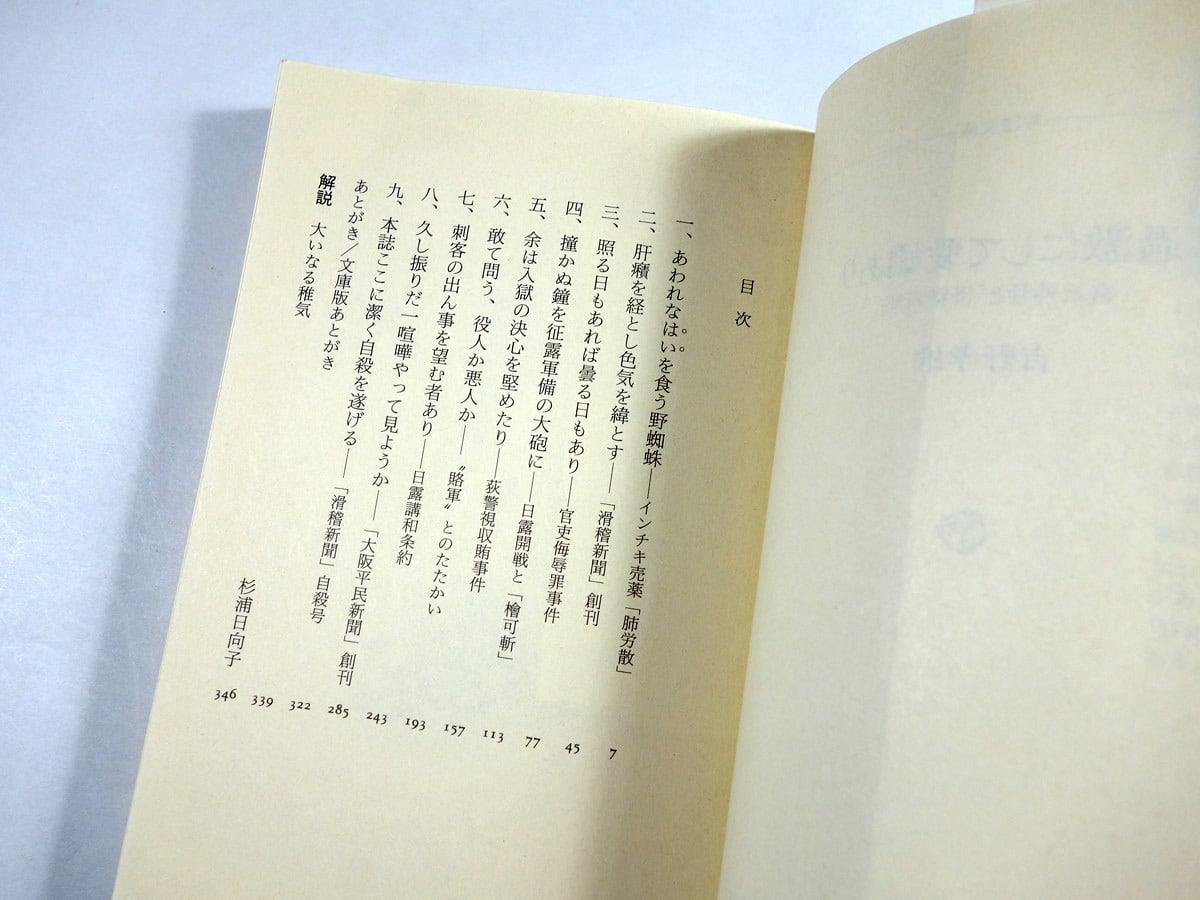 目次
一、あわれなはいを食う野蜘蛛――インチキ売薬「肺労散」 7
二、肝癪を経とし色気を緯とす――「滑稽新聞」創刊 45
三、照る日もあれば曇る日もあり――官吏侮辱罪事件 77
四、撞かぬ鐘を征露軍備の大砲に――日露開戦と「檜可斬」 113
五、余は入獄の決心を堅めたり――荻警視収賄事件 157
六、敢て問う、役人か悪人か――〝賂軍〟とのたたかい 193
七、刺客の出ん事を望む者あり――日露講和条約 243
八、久し振りだ一喧嘩やって見ようか――「大阪平民新聞」創刊 285
九、本誌ここに潔く自殺を遂げる――「滑稽新聞」自殺号 322
あとがき／文庫版あとがき 339
解説 大いなる稚気 杉浦日向子 346